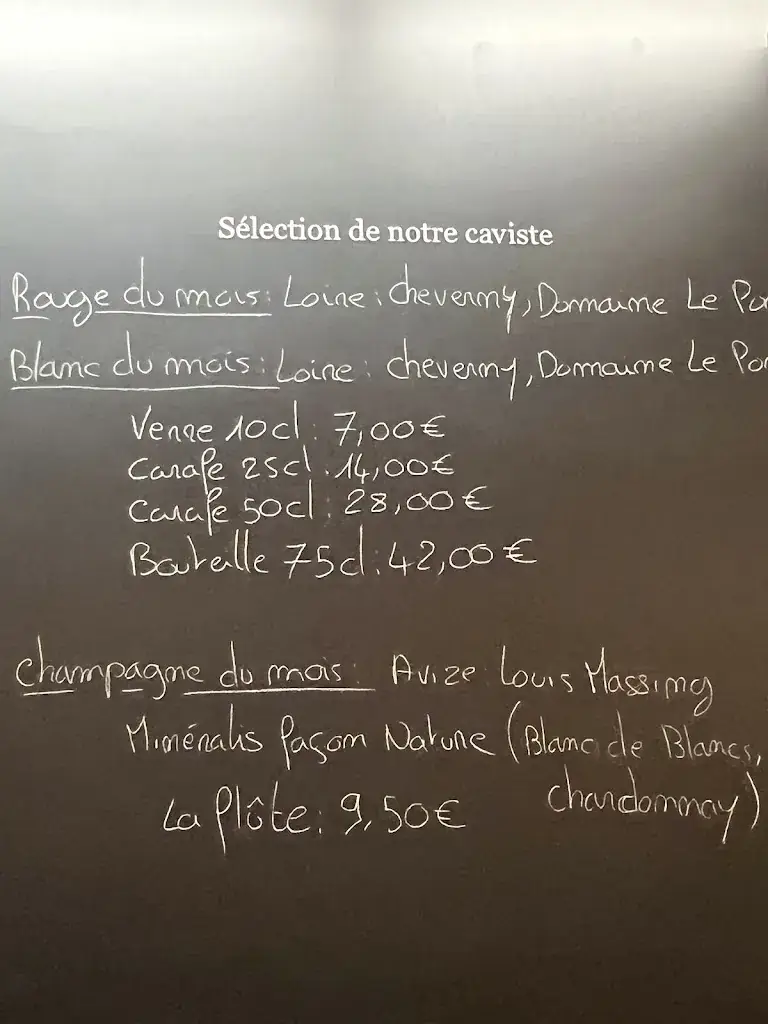 Sélection de notre caviste
Rouge du mois: Loire: cheverny, Domaine Le
Blanc du mois: Loire: cheverny, Domaine Le
Verre 10cl: 7,00€
Carafe 25cl: 14,00€
Carafe 50cl: 28,00€
Bouteille 75cl: 42,00€
Champagne du mois: Avize Louis Massing
Minéralis façon Nature (Blanc de Blancs,
chardonnay)
La flûte: 9,50€